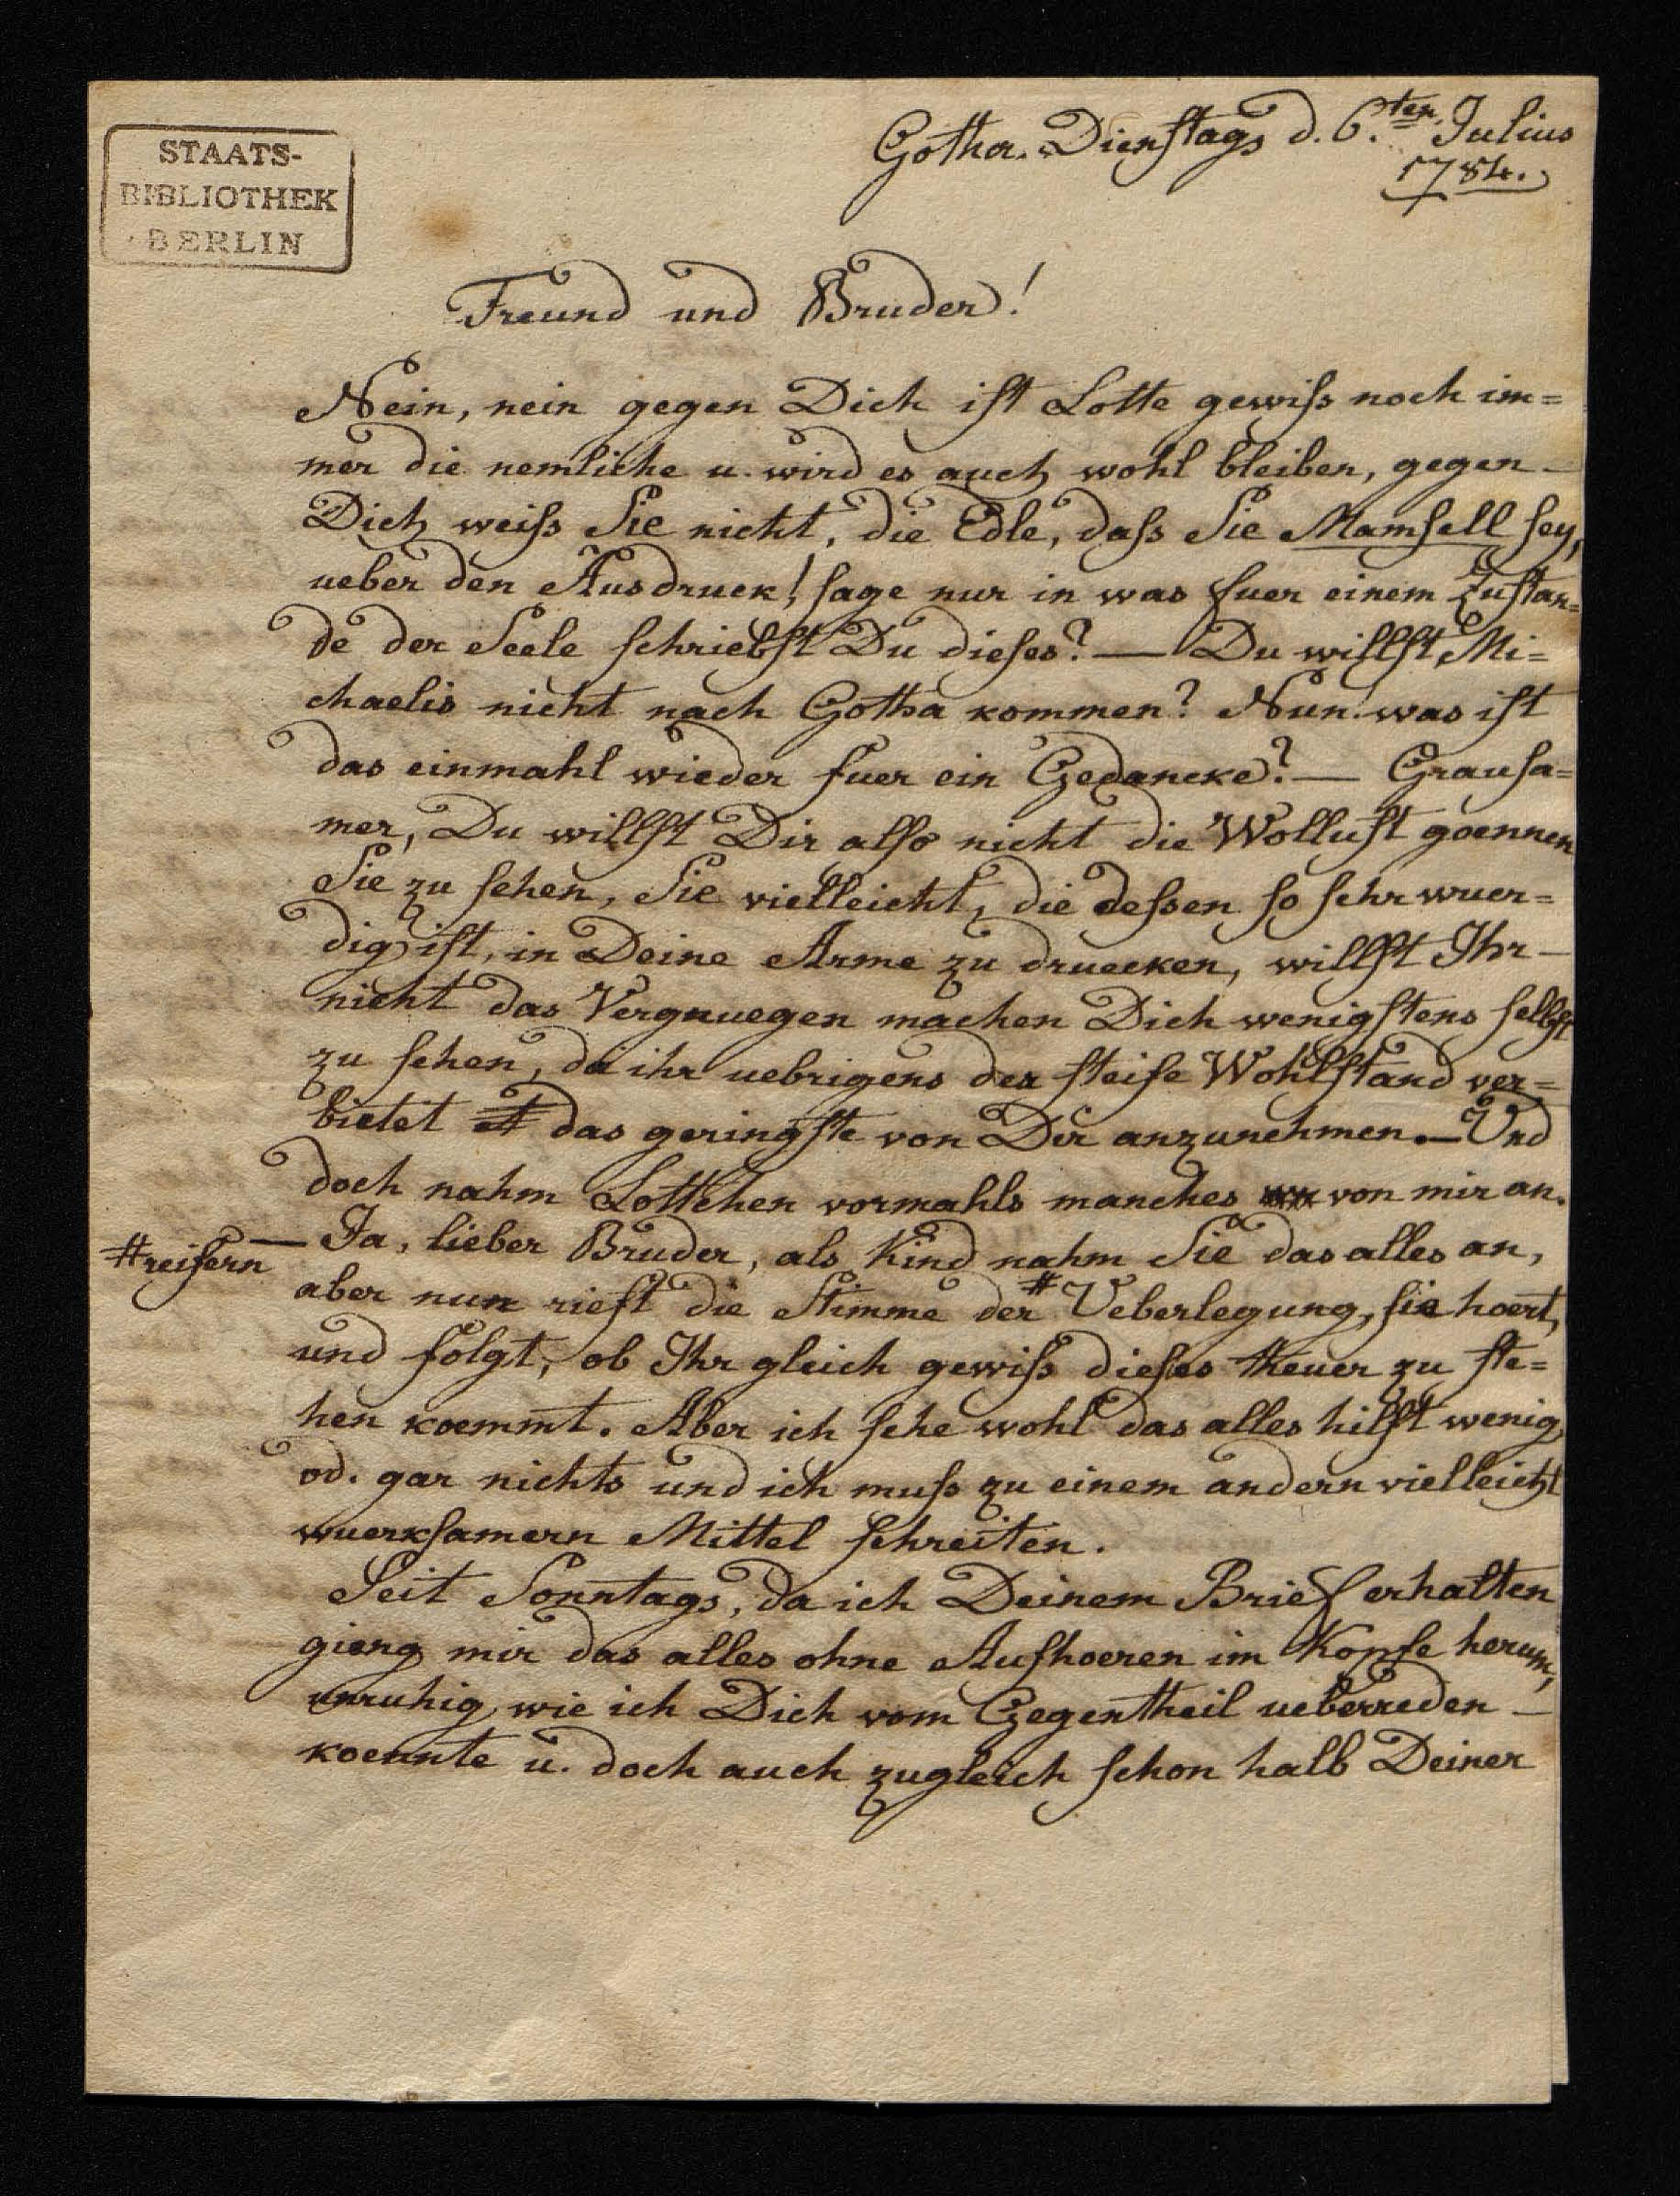 STAATS-
BIBLIOTHEK
BERLIN
Gotha. Dienstags d. 6.ten Julius
1784.
Freund und Bruder!
Nein, nein gegen Dich ist Lotte gewiss noch im=
mer die nemliche u. wird es auch wohl bleiben, gegen
Dich weiss Sie nicht, die Edle, dass Sie Mamsell sey,
ueber den Ausdruck! sage nur in was fuer einem Zustan=
de der Seele schriebst Du dieses? — Du willst Mi=
chaelis nicht nach Gotha kommen? Nun was ist
das einmahl wieder fuer ein Gedancke? — Grausa=
mer, Du willst Dir also nicht die Wollust goennen
Sie zu sehen, Sie vielleicht, die dessen so sehr wuer=
dig ist, in Deine Arme zu druecken, willst Ihr —
nicht das Vergnuegen machen Dich wenigstens selbst
zu sehen, da ihr uebrigens der steife Wohlstand ver=
bietet das geringste von Dir anzunehmen. — Und
doch nahm Lottchen vormahls manches von mir an.
— Ja, lieber Bruder, als Kind nahm Sie das alles an,
#reifern
aber nun rieft die Stimme der # Ueberlegung, sie hoert,
und folgt, ob Ihr gleich gewiss dieses theuer zu ste=
hen koemmt. Aber ich sehe wohl das alles hilft wenig
od. gar nichts und ich muss zu einem andern vielleicht
wuerksamern Mittel schreiten.
Seit Sonntags, da ich Deinem Brief erhalten
gieng mir das alles ohne Aufhoeren im Kopfe herum,
unruhig wie ich Dich vom Gegentheil ueberreden —
koennte u. doch auch zugleich schon halb Deiner